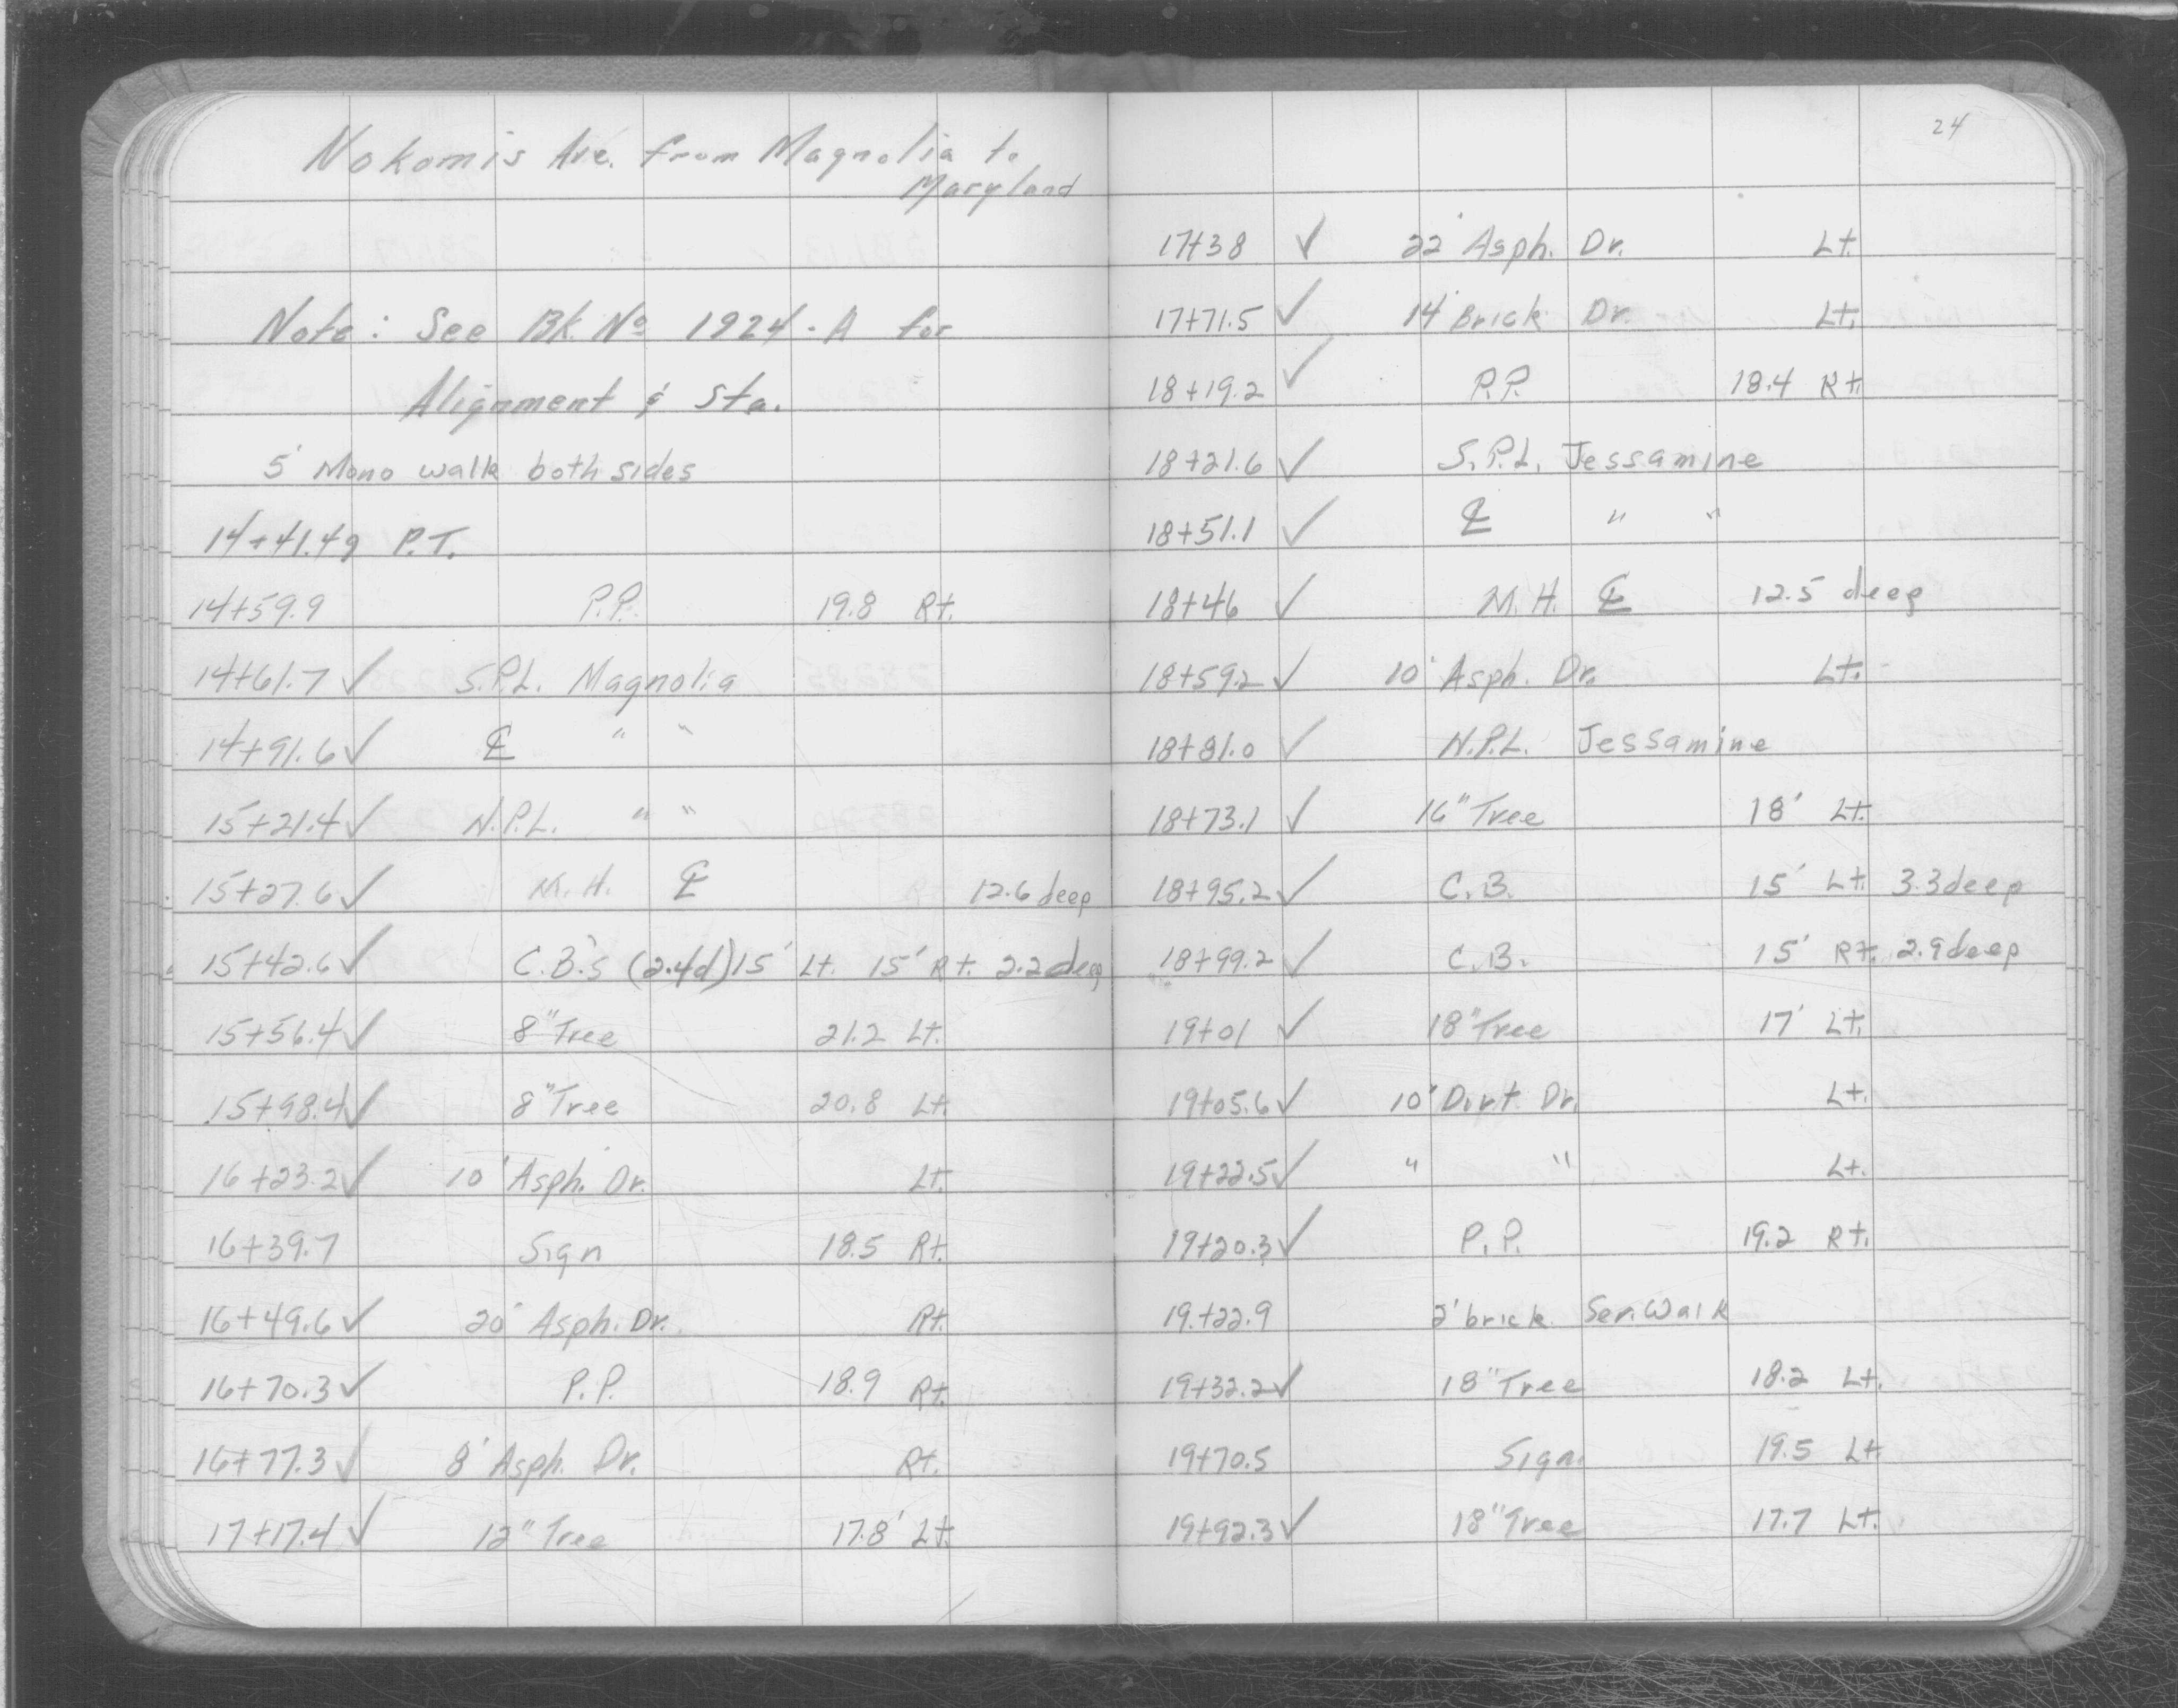 Nokomis Ave. from Magnolia to
Maryland
Note: See Bk. No 1924-A for
Alignment & Sta.
5' Mono walk both sides
14+41.49 P.T.
14+59.9 P.P. 19.8 Rt.
14+61.7 ✓ S.P.L. Magnolia
14+91.6 ✓ ℄ " "
15+21.4 ✓ N.P.L. " "
15+27.6 ✓ M.H. ℄ 12.6 deep
15+42.6 ✓ C.B.'s (2.4d) 15' Lt. 15' Rt. 2.2 deep
15+56.4 ✓ 8" Tree 21.2 Lt.
15+98.4 ✓ 8" Tree 20.8 Lt.
16+23.2 ✓ 10' Asph. Dr. Lt.
16+39.7 Sign 18.5 Rt.
16+49.6 ✓ 20' Asph. Dr. Rt.
16+70.3 ✓ P.P. 18.9 Rt.
16+77.3 ✓ 8' Asph. Dr. Rt.
17+17.4 ✓ 12" Tree 17.8' Lt.
24
17+38 ✓ 22' Asph. Dr. Lt.
17+71.5 ✓ 14' Brick Dr. Lt.
18+19.2 ✓ P.P. 18.4 Rt.
18+21.6 ✓ S.P.L. Jessamine
18+51.1 ✓ ℄ " "
18+46 ✓ M.H. ℄ 12.5 deep
18+59.2 ✓ 10' Asph. Dr. Lt.
18+81.0 ✓ N.P.L. Jessamine
18+73.1 ✓ 16" Tree 18' Lt.
18+95.2 ✓ C.B. 15' Lt. 3.3 deep
18+99.2 ✓ C.B. 15' Rt. 2.9 deep
19+01 ✓ 18" Tree 17' Lt.
19+05.6 ✓ 10' Dirt Dr. Lt.
19+22.5 ✓ " " Lt.
19+20.3 ✓ P.P. 19.2 Rt.
19+22.9 2' brick Ser. Walk
19+32.2 ✓ 18" Tree 18.2 Lt.
19+70.5 Sign 19.5 Lt.
19+92.3 ✓ 18" Tree 17.7 Lt.